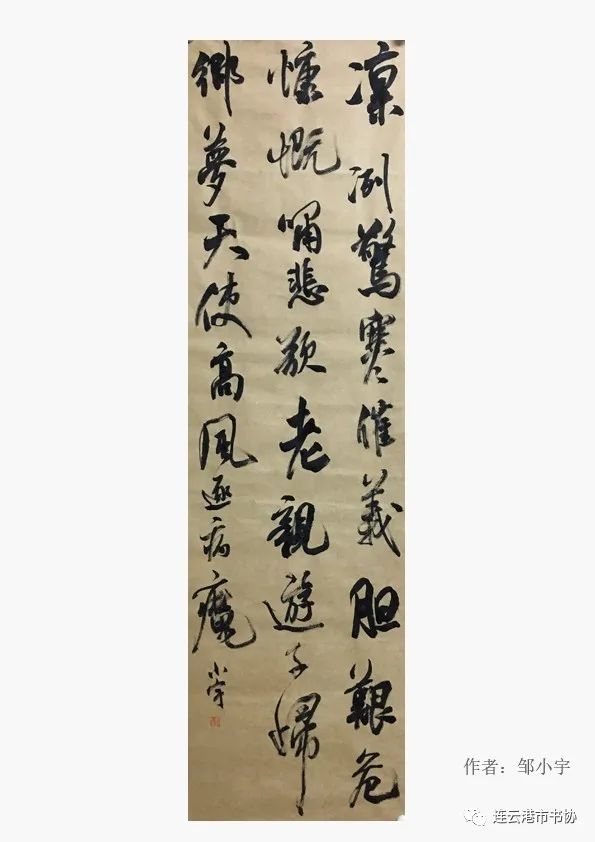 凜冽驚寒催義胆艱危
慷慨嘯悲歌老親遊子歸
鄉夢天使高風逐病魔
小宇
作者：邹小宇
连云港市书协